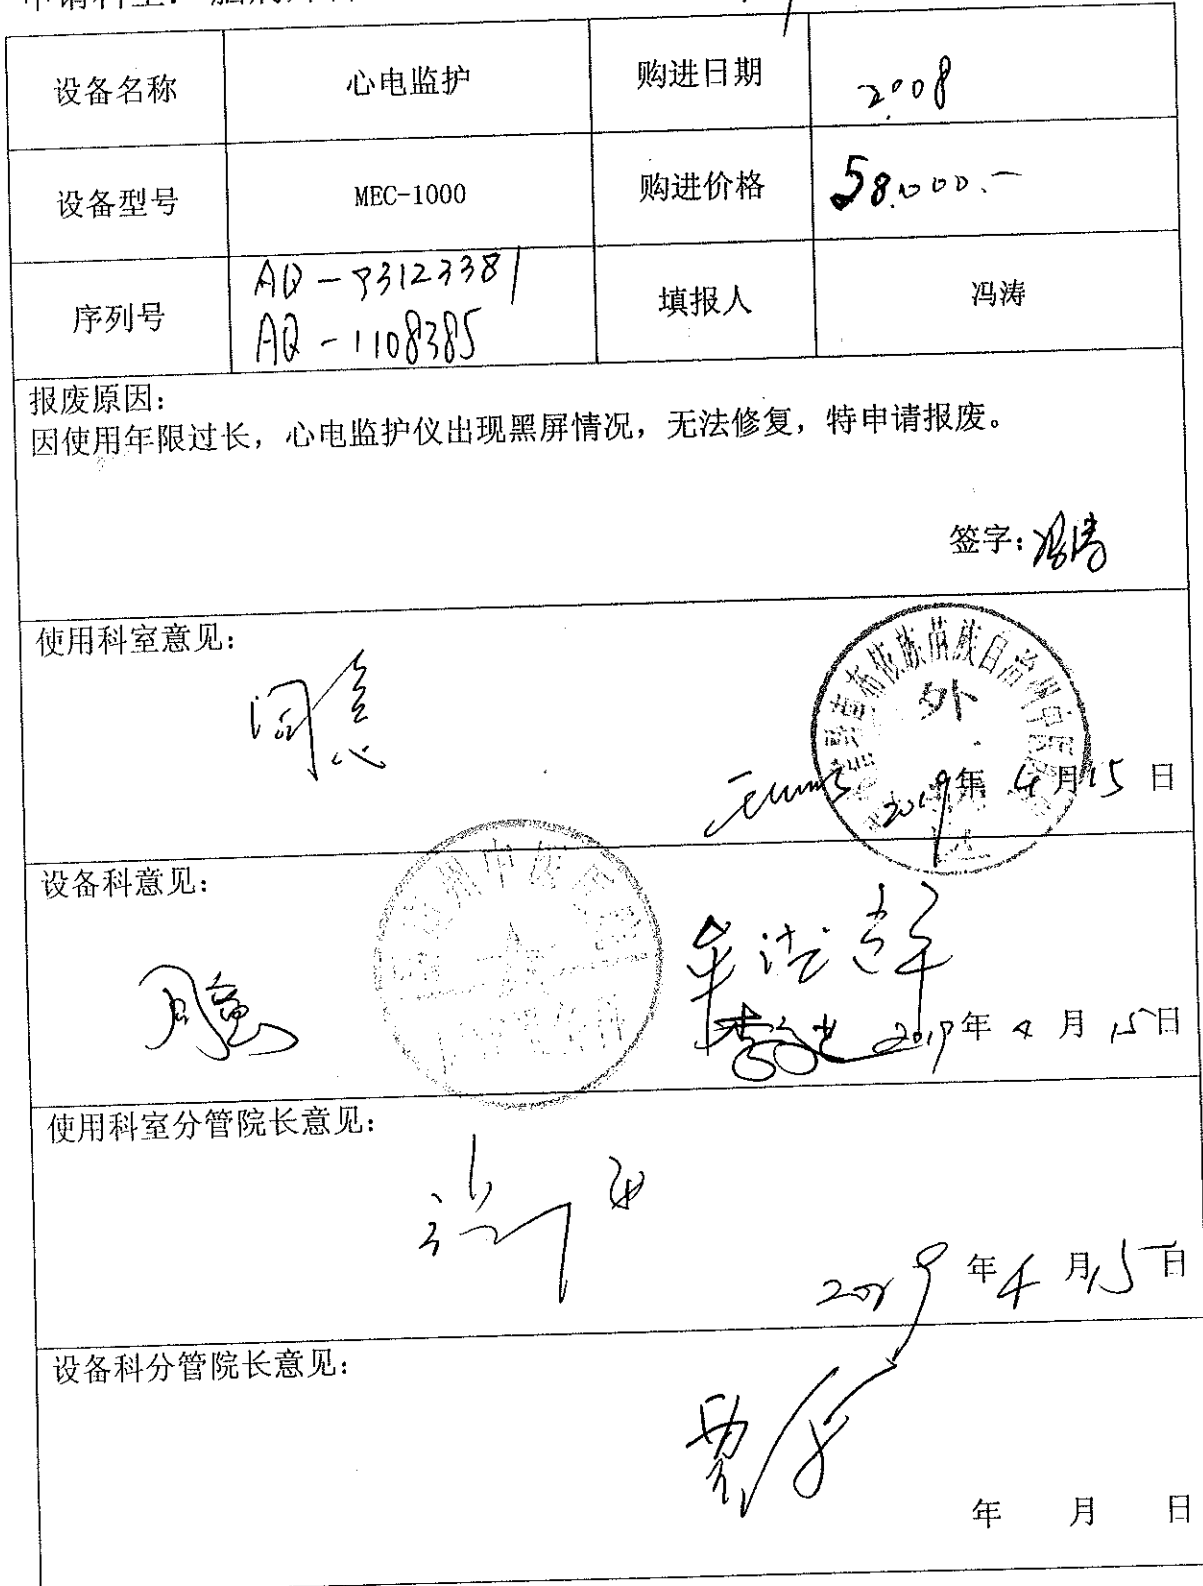 设备名称 心电监护 购进日期 2008
设备型号 MEC-1000 购进价格 58.000.-
序列号 AQ-93123381 填报人 冯涛
AQ-1108385
报废原因：
因使用年限过长，心电监护仪出现黑屏情况，无法修复，特申请报废。
签字：冯涛
使用科室意见：
同意
外
2019年 4月15日
设备科意见：
同意
2019年 4月 15日
使用科室分管院长意见：
2019年4月15日
设备科分管院长意见：
年 月 日